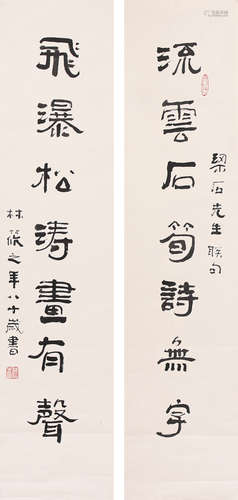 流雲石筍詩無字
梁石先生聯句
飛瀑松濤畫有聲
林筱之年八十歲書